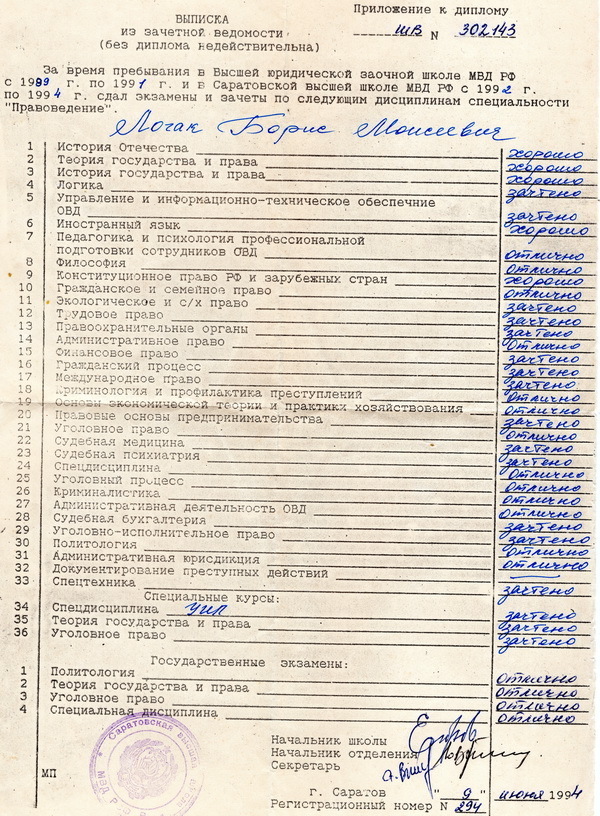 Приложение к диплому
ВЫПИСКА
из зачетной ведомости
(без диплома недействительна)
ШВ N 302143
За время пребывания в Высшей юридической заочной школе МВД РФ
с 1989 г. по 1991 г. и в Саратовской высшей школе МВД РФ с 1992 г.
по 1994 г. сдал экзамены и зачеты по следующим дисциплинам специальности
"Правоведение".
Логак Борис Моисеевич
1 История Отечества хорошо
2 Теория государства и права хорошо
3 История государства и права хорошо
4 Логика зачтено
5 Управление и информационно-техническое обеспечние
ОВД зачтено
6 Иностранный язык хорошо
7 Педагогика и психология профессиональной
подготовки сотрудников ОВД отлично
8 Философия отлично
9 Конституционное право РФ и зарубежных стран хорошо
10 Гражданское и семейное право отлично
11 Экологическое и с/х право зачтено
12 Трудовое право зачтено
13 Правоохранительные органы зачтено
14 Административное право отлично
15 Финансовое право зачтено
16 Гражданский процесс зачтено
17 Международное право зачтено
18 Криминология и профилактика преступлений отлично
19 Основы экономической теории и практики хозяйствования отлично
20 Правовые основы предпринимательства зачтено
21 Уголовное право отлично
22 Судебная медицина зачтено
23 Судебная психиатрия зачтено
24 Спецдисциплина отлично
25 Уголовный процесс отлично
26 Криминалистика отлично
27 Административная деятельность ОВД отлично
28 Судебная бухгалтерия зачтено
29 Уголовно-исполнительное право зачтено
30 Политология отлично
31 Административная юрисдикция отлично
32 Документирование преступных действий —
33 Спецтехника зачтено
Специальные курсы:
34 Спецдисциплина зачтено
35 Теория государства и права зачтено
36 Уголовное право зачтено
Государственные экзамены:
1 Политология отлично
2 Теория государства и права отлично
3 Уголовное право отлично
4 Специальная дисциплина отлично
Саратовская высшая школа
МВД РФ
Начальник школы
Начальник отделения
Секретарь
МП
г. Саратов "9" июня 1994
Регистрационный номер N 294